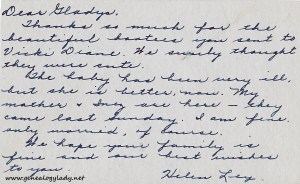 Dear Gladys,
Thanks so much for the
beautiful bootees you sent to
Vicki Diane. We surely thought
they were cute.
The baby has been very ill,
but she is better, now. My
mother & Inez are here – they
came last Sunday. I am fine.
only worried, of course.
We hope your family is
fine and our best wishes
to you.
Helen
www.genealogylady.net